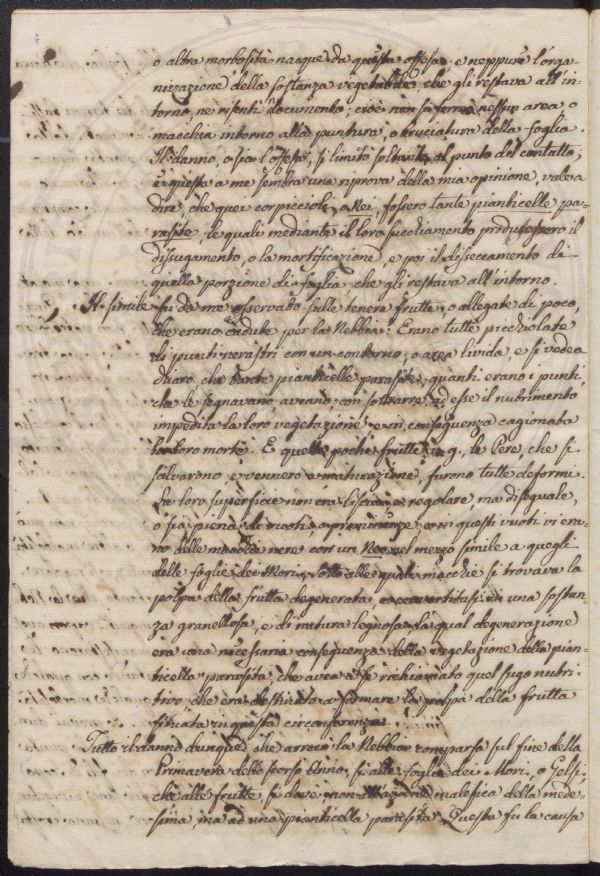 o altra morbosità nacque da questa offesa: e neppure l'orga-
nizazione della sostanza vegetabile, che gli restava all'in-
torno, ne risentì documento; cioè non si formò nessun area, o
macchia intorno alla puntura, o bruciatura della foglia.
Il danno, o sia l'offesa, si limitò soltanto al punto del contatto;
e questa a me sembra una riprova della mia opinione, vale a
dire, che quei corpiccioli, o Nei, fossero tante pianticelle pa-
rasite, le quali mediante il loro succhiamento producessero il
dissugamento, o la mortificazione, e poi il disseccamento di
quella porzione di foglia, che gli restava all'intorno.
Il simile fu da me osservato sulle tenere frutte, o allegate di poco,
che erano cadute per la Nebbia: Erano tutte picchiolate
di punti nerastri con un contorno, o area livida, e si vedea
chiaro, che tante pianticelle parasite, quanti erano i punti,
che le segnavano, aveano, con sottrarre ad esse il nutrimento
impedita la loro vegetazione, e in conseguenza cagionata
la loro morte. E quelle poche frutte, v. g. le Pere, che si
salvarono, e vennero a maturazione, furono tutte deformi.
La loro superficie non era liscia, o regolare, ma diseguale,
o sia piena di vuoti, o prominenze, e in questi vuoti vi era-
no delle macchie nere con un Neo nel mezzo simile a quegli
delle foglie dei Mori, sotto alle quali macchie si trovava la
polpa della frutta degenerata, e convertitasi in una sostan-
za granellosa, e di natura legnosa, la qual degenerazione
era una necessaria conseguenza della vegetazione della pian-
ticella parasita, che avea a sè richiamato quel sugo nutri-
tivo che era destinato a formare la polpa della frutta
situata in questa circonferenza.
Tutto il danno dunque, che arrecò la Nebbia comparsa sul fine della
Primavera dello scorso Anno, sì alle foglie dei Mori, o Gelsi,
che alle frutte, si deve non all'azione malefica della mede-
sima, ma ad una pianticella parasita. Questa fu la causa